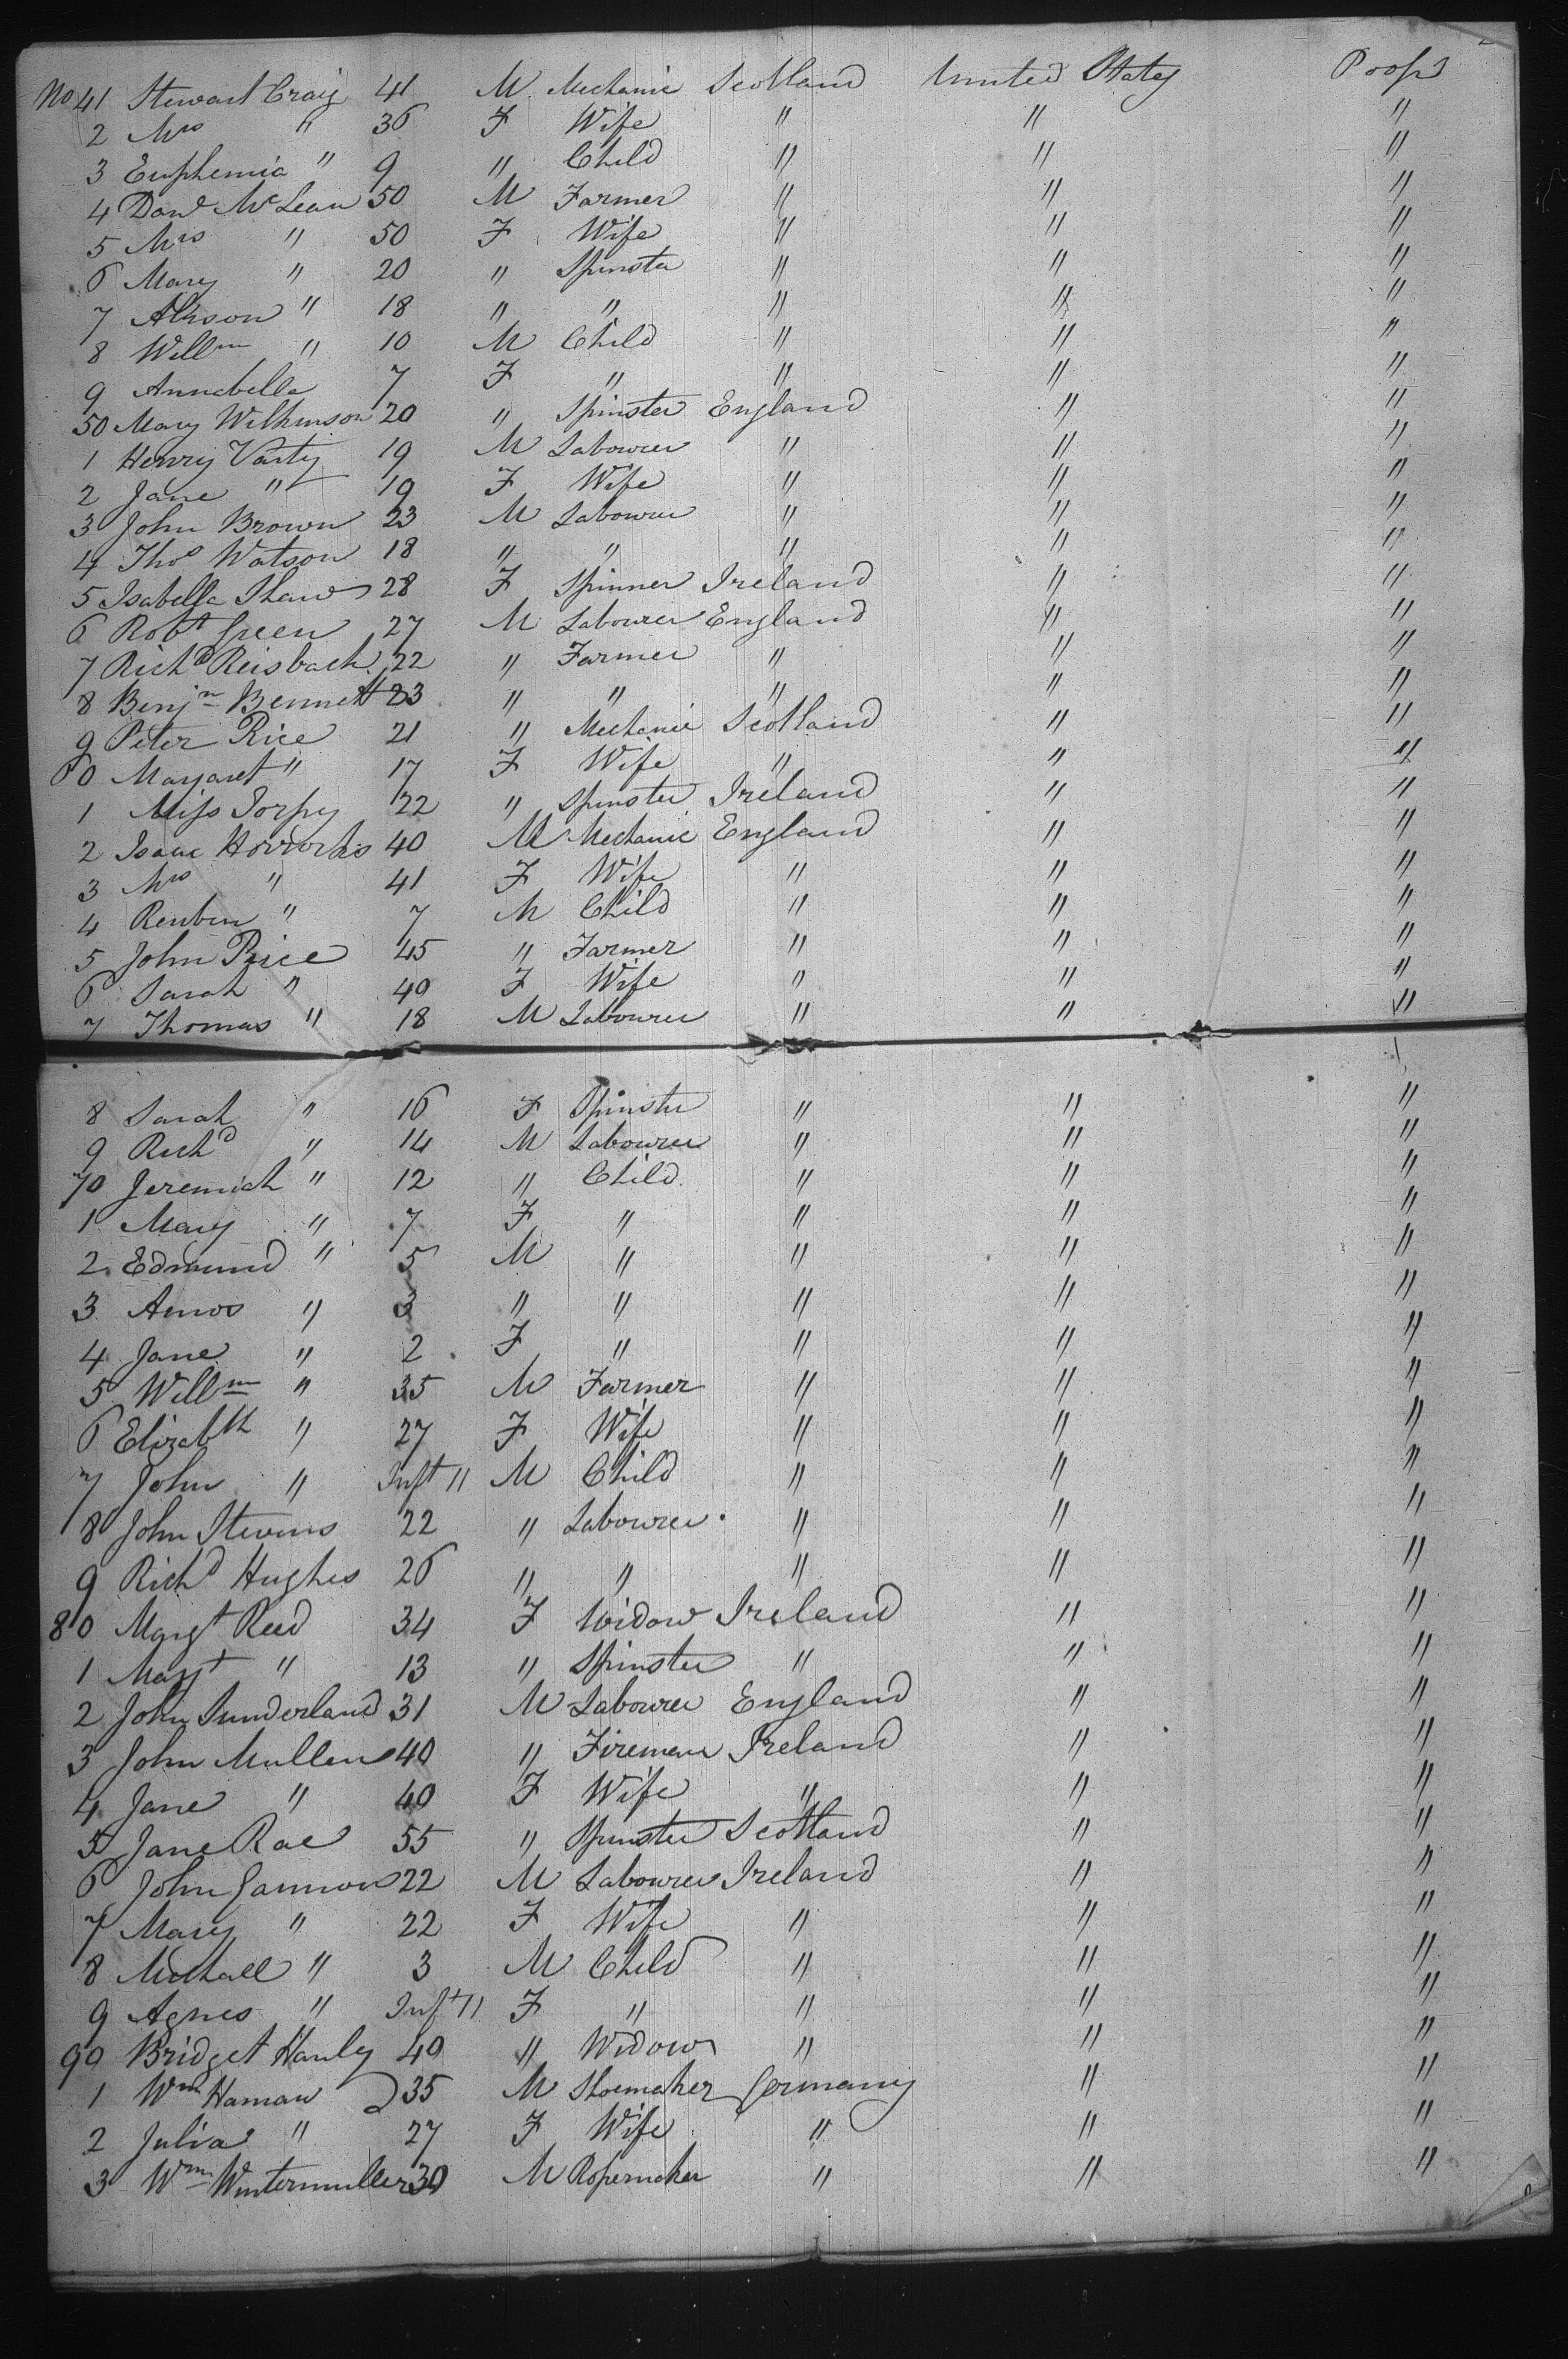 No 41 Stewart Craig 41 M Mechanic Scotland United States Poop
2 Mrs " 36 F Wife " " "
3 Euphemia " 9 " Child " " "
4 Dand McLean 50 M Farmer " " "
5 Mrs " 50 F Wife " " "
6 Mary " 20 " Spinster " " "
7 Alison " 18 " " " " "
8 Willm " 10 M Child " " "
9 Annabella 7 F " " " "
50 Mary Wilkinson 20 " Spinster England " "
1 Henry Varty 19 M Labourer " " "
2 Jane " 19 F Wife " " "
3 John Brown 23 M Labourer " " "
4 Thos Watson 18 " " " " "
5 Isabella Shaw 28 F Spinner Ireland " "
6 Robt Green 27 M Labourer England " "
7 Richd Reisbach 22 " Farmer " " "
8 Benjn Bennett 23 " " " " "
9 Peter Rice 21 " Mechanic Scotland " "
60 Margaret " 17 F Wife " " "
1 Miss Torpy 22 " Spinster Ireland " "
2 Isaac Horrocks 40 M Mechanic England " "
3 Mrs " 41 F Wife " " "
4 Reuben " 7 M Child " " "
5 John Price 45 " Farmer " " "
6 Sarah " 40 F Wife " " "
7 Thomas " 18 M Labourer " " "
8 Sarah " 16 F Spinster " " "
9 Richd " 14 M Labourer " " "
70 Jeremiah " 12 " Child " " "
1 Mary " 7 F " " " "
2 Edmund " 5 M " " " "
3 Amos " 3 " " " " "
4 Jane " 2 F " " " "
5 Willm " 35 M Farmer " " "
6 Elizabth " 27 F Wife " " "
7 John " Inft " M Child " " "
8 John Stevens 22 " Labourer " " "
9 Richd Hughes 26 " " " " "
80 Margt Reed 34 F Widow Ireland " "
1 Margt " 13 " Spinster " " "
2 John Sunderland 31 M Labourer England " "
3 John Mullen 40 " Fireman Ireland " "
4 Jane " 40 F Wife " " "
5 Jane Rae 55 " Spinster Scotland " "
6 John Gannon 22 M Labourer Ireland " "
7 Mary " 22 F Wife " " "
8 Michall " 3 M Child " " "
9 Agnes " Inft " F " " " "
90 Bridget Hanly 40 " Widow " " "
1 Wm Haman 35 M Shoemaker Germany " "
2 Julia " 27 F Wife " " "
3 Wm Wintermuller 30 M Ropemaker " " "